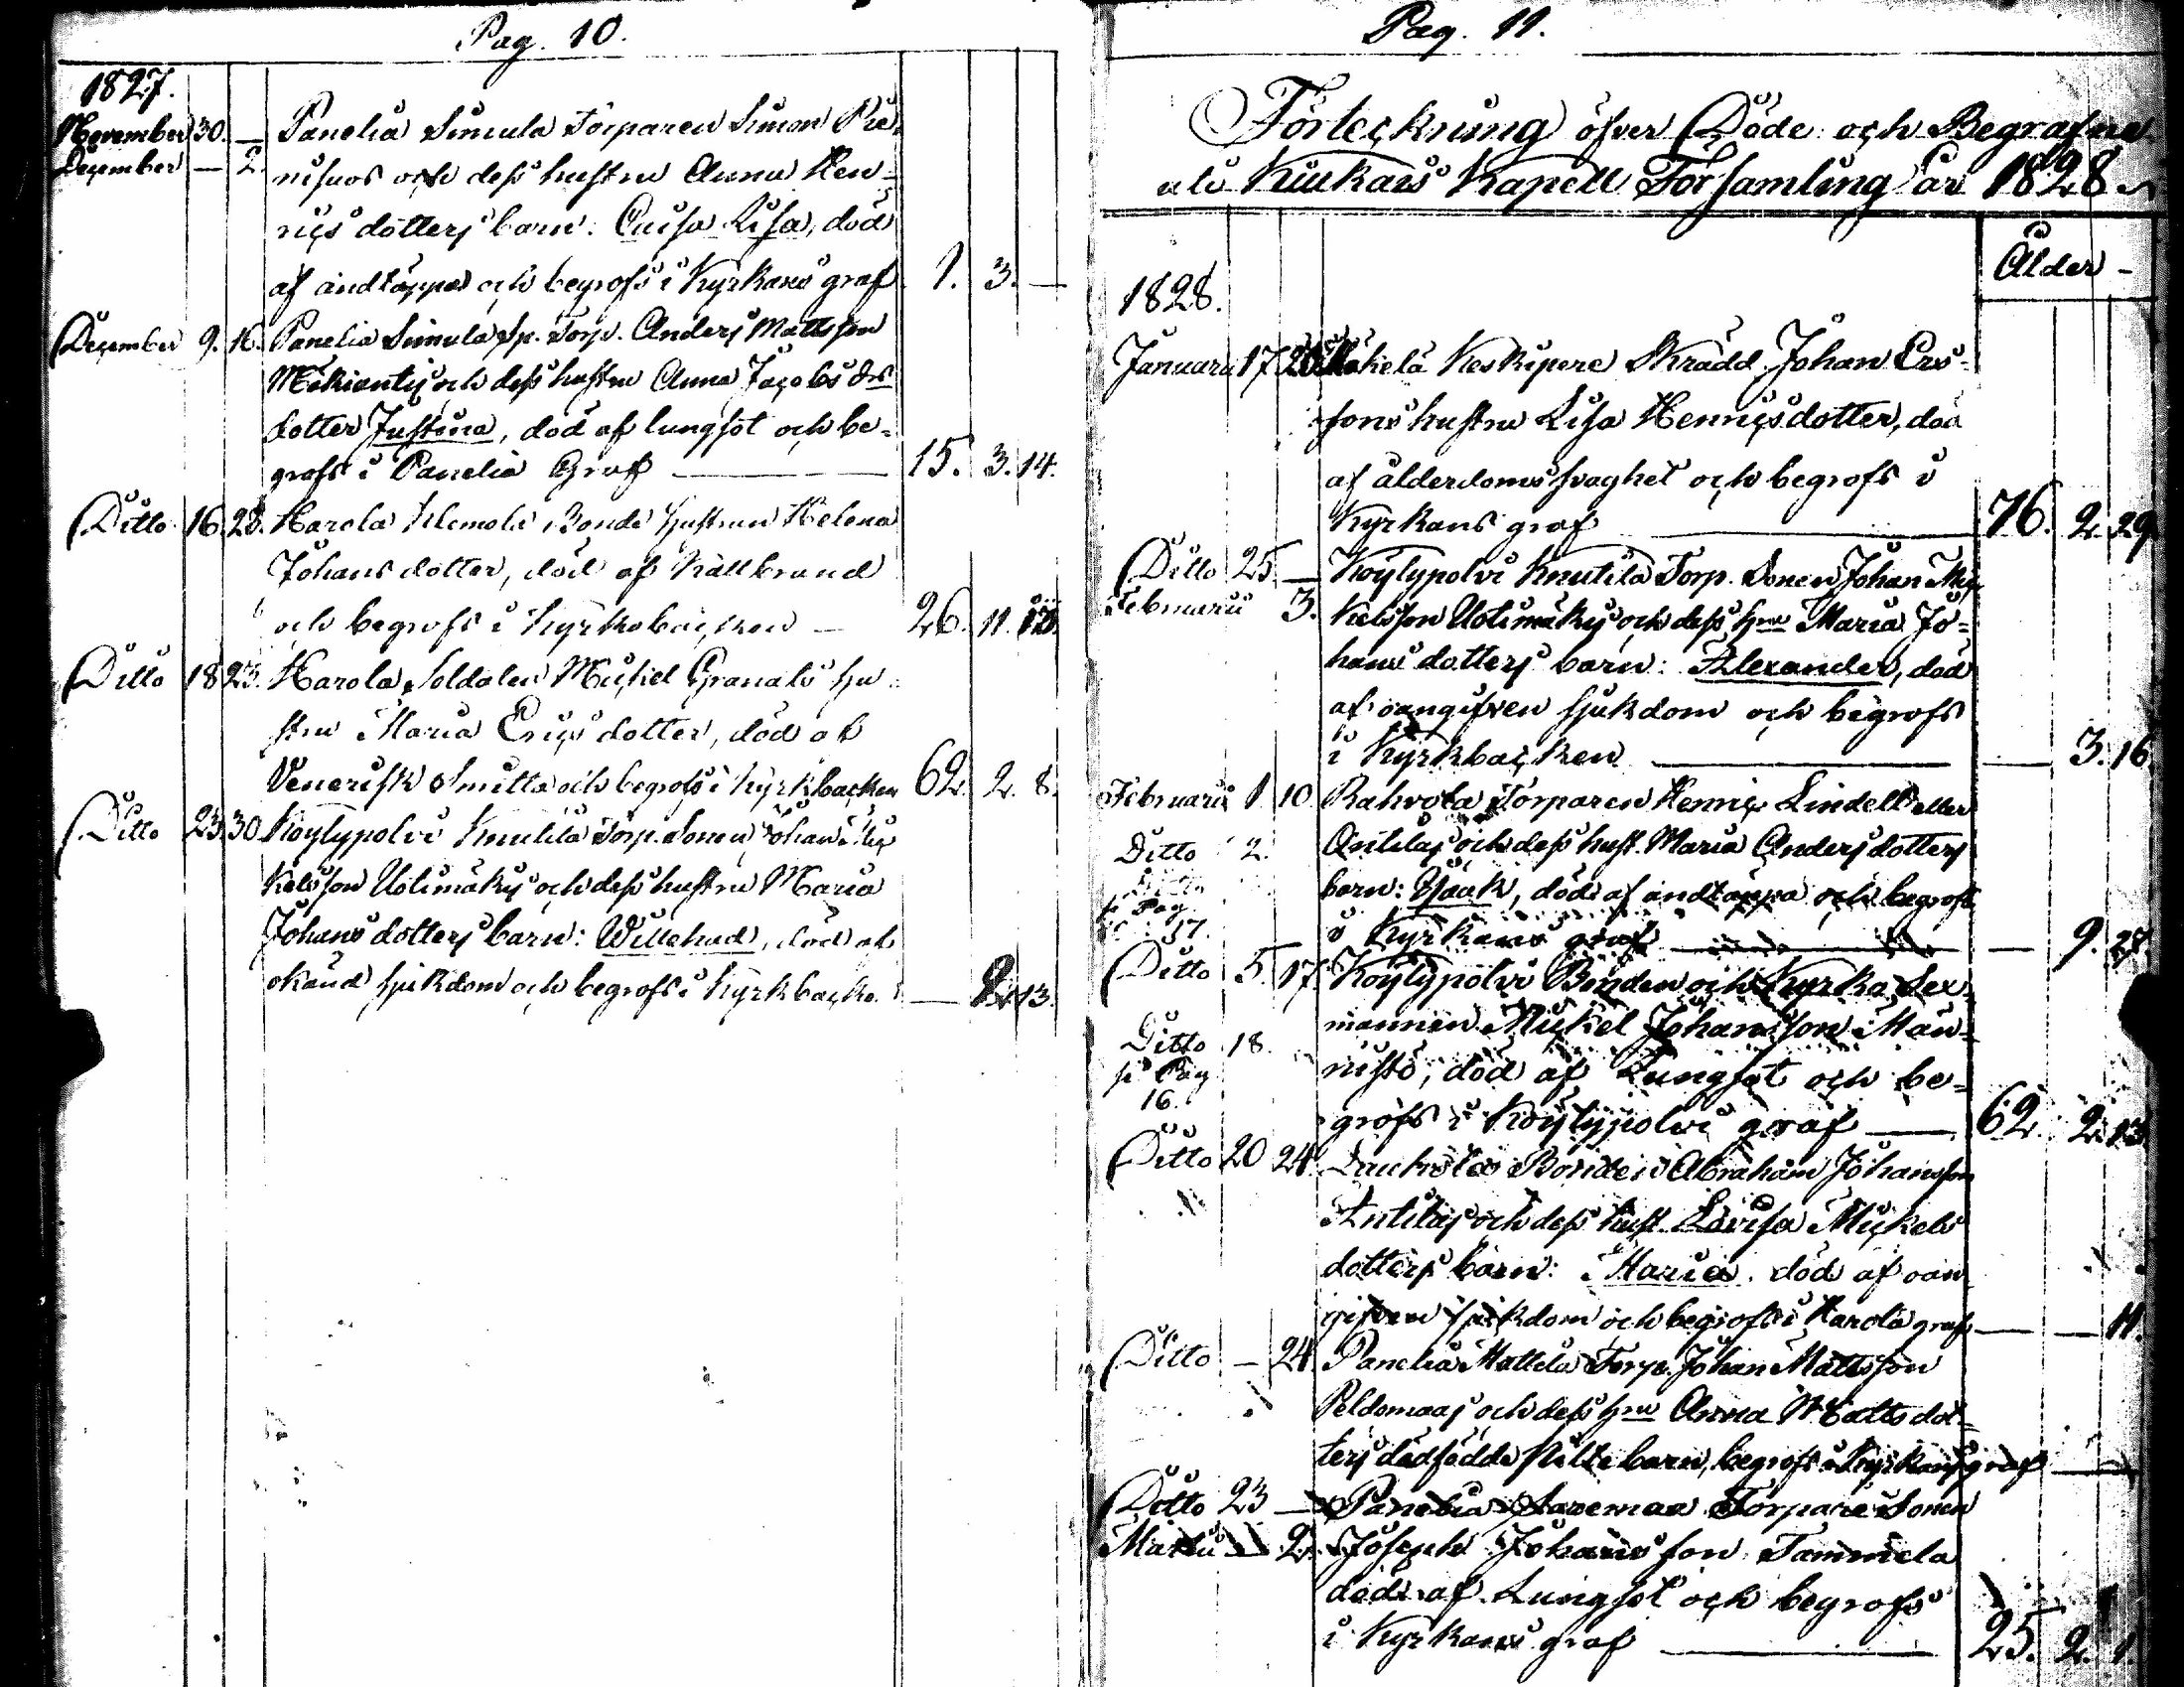 Pag. 10.
1827.
November 30. — Panelia Simula Torparen Simon
December — 2. och dess hustru Anna Hen=
rics dotters barn: Lisa, död
af andtäppa och begrofs i Kyrkans graf 1. 3. —
December 9. 16. Panelia Simula Sp. Torp. Anders Mattsson
och dess hustru Anna Jacobs drs
dotter Justina, död af lungsot och be=
grofs i Panelia Graf — 15. 3. 14.
Ditto 16. 23. Harola Bonde hustrun Helena
Johans dotter, död af Kallbrand
och begrofs i Kyrkobacken — 26. 11.
Ditto 18 23. Harola Soldaten Mickel Granats hu=
stru Maria Erics dotter, död af
Venerisk Smitta och begrofs i Kyrkbacken 62. 2. 8.
Ditto 23 30 Köylypolvi Knutila Torp. Sonen Johan Mic
kelsson Uotimäkis och dess hustru Maria
Johans dotters barn: Willehad, död af
okänd sjukdom och begrofs i Kyrkbacke. — 13.
Pag. 11.
Förteckning öfver Döde och Begrafne
uti Kiukais Kapell Församling år 1828
Ålder —
1828.
Januarii 17 20 Keskipere Skrädd. Johan Ers=
sons hustru Lisa Henricsdotter, död
af ålderdoms svaghet och begrofs i
Kyrkans graf 76. 2. 29
Ditto 25 — Köylypolvi Knutila Torp. Sonen Johan Mic
Februarii 3. kelsson Uotimäkis och dess hru Maria Jo=
hans dotters barn: Alexander, död
af oangifven sjukdom och begrofs
i Kyrkbacken — — 3. 16
Februarii 1 10 Rahvola Torparen Henric Lindell eller
Ditto 2. Antilas och dess hust. Maria Anders dotters
Ditto barn: Isaak, död af andtäppa och begrofs
s. Pag 17. i Kyrkans graf — — 9. 28.
Ditto 5. 17. Köylypolvi Bonden och Kyrko Sex=
mannen Mickel Johansson Män=
Ditto 18. nistö, död af Lungsot och be=
s. Pag 16. grofs i Köylypolvi graf — 62. 2. 13
Ditto 20 24. Bonden Abraham Johansson
Antilas och dess hust. Lovisa Mickels
dotters barn: Maria. död af oan
gifven sjukdom och begrofs i Harola graf — — 11.
Ditto — 24. Panelia Mattila Torp. Johan Mattsson
Peldomaas och dess hru Anna Matts dot=
ters dödfödde Pilte barn, begrofs i Kyrkans graf —
Ditto 23 — Panelia Saremaa Torpare Sonen
Martii — 2. Joseph Johansson Tammela
död af Lungsot och begrofs
i Kyrkans graf — 25. 2. 1.